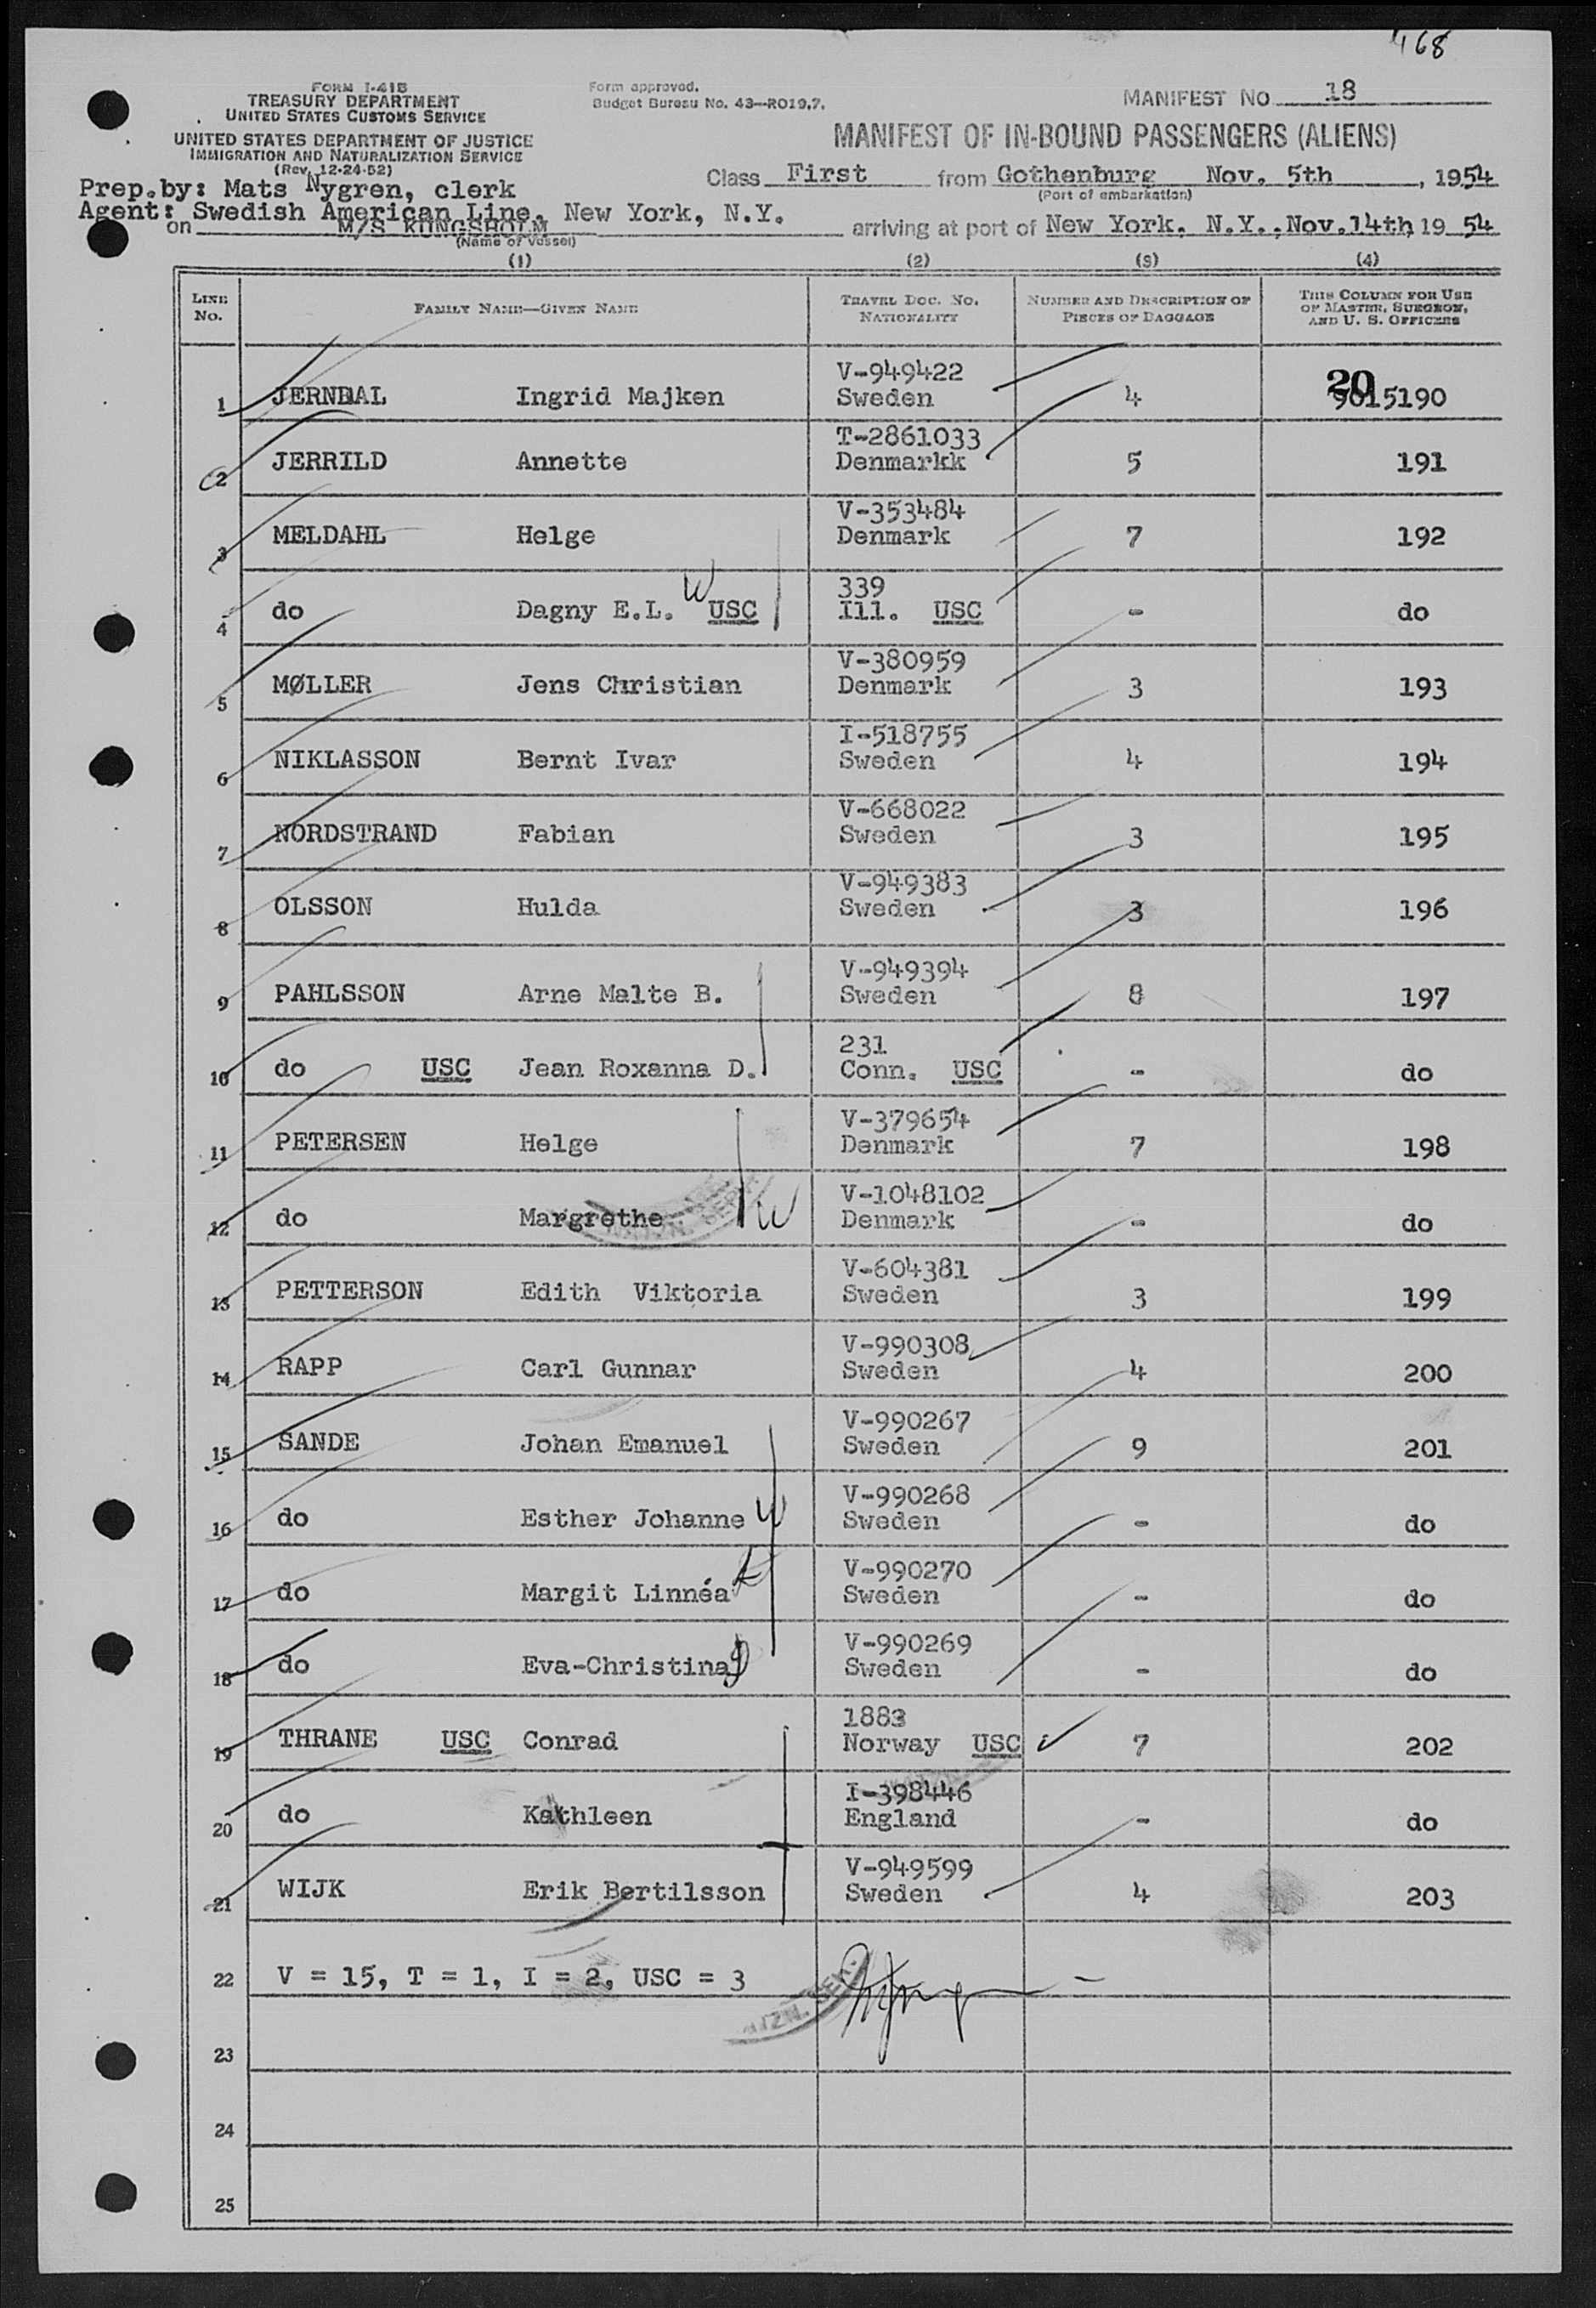 468
FORM I-415
TREASURY DEPARTMENT
UNITED STATES CUSTOMS SERVICE
UNITED STATES DEPARTMENT OF JUSTICE
IMMIGRATION AND NATURALIZATION SERVICE
(Rev. 12-24-52)
Form approved.
Budget Bureau No. 43—R019.7.
MANIFEST NO 18
MANIFEST OF IN-BOUND PASSENGERS (ALIENS)
Class First from Gothenburg Nov. 5th, 1954
(Port of embarkation)
Prep.by: Mats Nygren, clerk
Agent: Swedish American Line, New York, N.Y.
on M/S KUNGSHOLM
(Name of vessel)
arriving at port of New York, N.Y., Nov.14th 19 54
(1) (2) (3) (4)
LINE NO.
FAMILY NAME—GIVEN NAME
TRAVEL DOC. NO. NATIONALITY
NUMBER AND DESCRIPTION OF PIECES OF BAGGAGE
THIS COLUMN FOR USE OF MASTER, SURGEON, AND U. S. OFFICERS
V-949422
20
1 JERNDAL Ingrid Majken Sweden 4 9015190
T-2861033
2 JERRILD Annette Denmarkk 5 191
V-353484
3 MELDAHL Helge Denmark 7 192
339
4 do Dagny E.L. W USC Ill. USC - do
V-380959
5 MØLLER Jens Christian Denmark 3 193
I-518755
6 NIKLASSON Bernt Ivar Sweden 4 194
V-668022
7 NORDSTRAND Fabian Sweden 3 195
V-949383
8 OLSSON Hulda Sweden 3 196
V-949394
9 PAHLSSON Arne Malte B. Sweden 8 197
231
10 do USC Jean Roxanna D. Conn. USC - do
V-379654
11 PETERSEN Helge Denmark 7 198
V-1048102
12 do Margrethe W Denmark - do
V-604381
13 PETTERSON Edith Viktoria Sweden 3 199
V-990308
14 RAPP Carl Gunnar Sweden 4 200
V-990267
15 SANDE Johan Emanuel Sweden 9 201
V-990268
16 do Esther Johanne W Sweden - do
V-990270
17 do Margit Linnéa Sweden - do
V-990269
18 do Eva-Christina Sweden - do
1883
19 THRANE USC Conrad Norway USC 7 202
I-398446
20 do Kathleen England - do
V-949599
21 WIJK Erik Bertilsson Sweden 4 203
22 V = 15, T = 1, I = 2, USC = 3
23
24
25